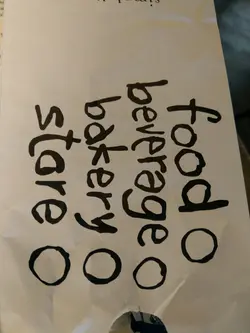 food
beverage
bakery
stare